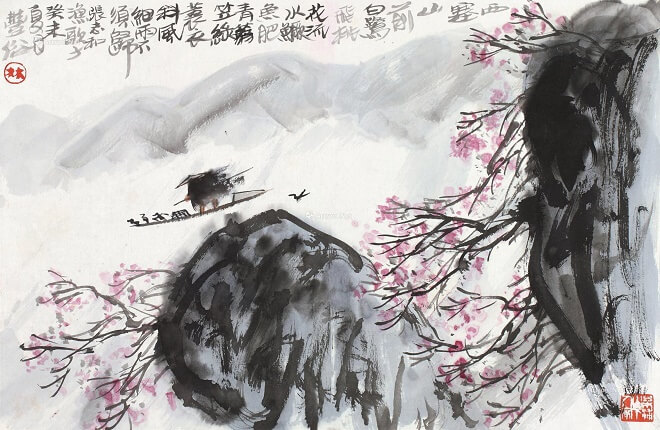 西塞山前
白鷺
飛桃
花流
水鱖
魚肥
青箬
笠綠
蓑衣
斜風
細雨不
須歸
張志和
漁歌子
癸未
夏月